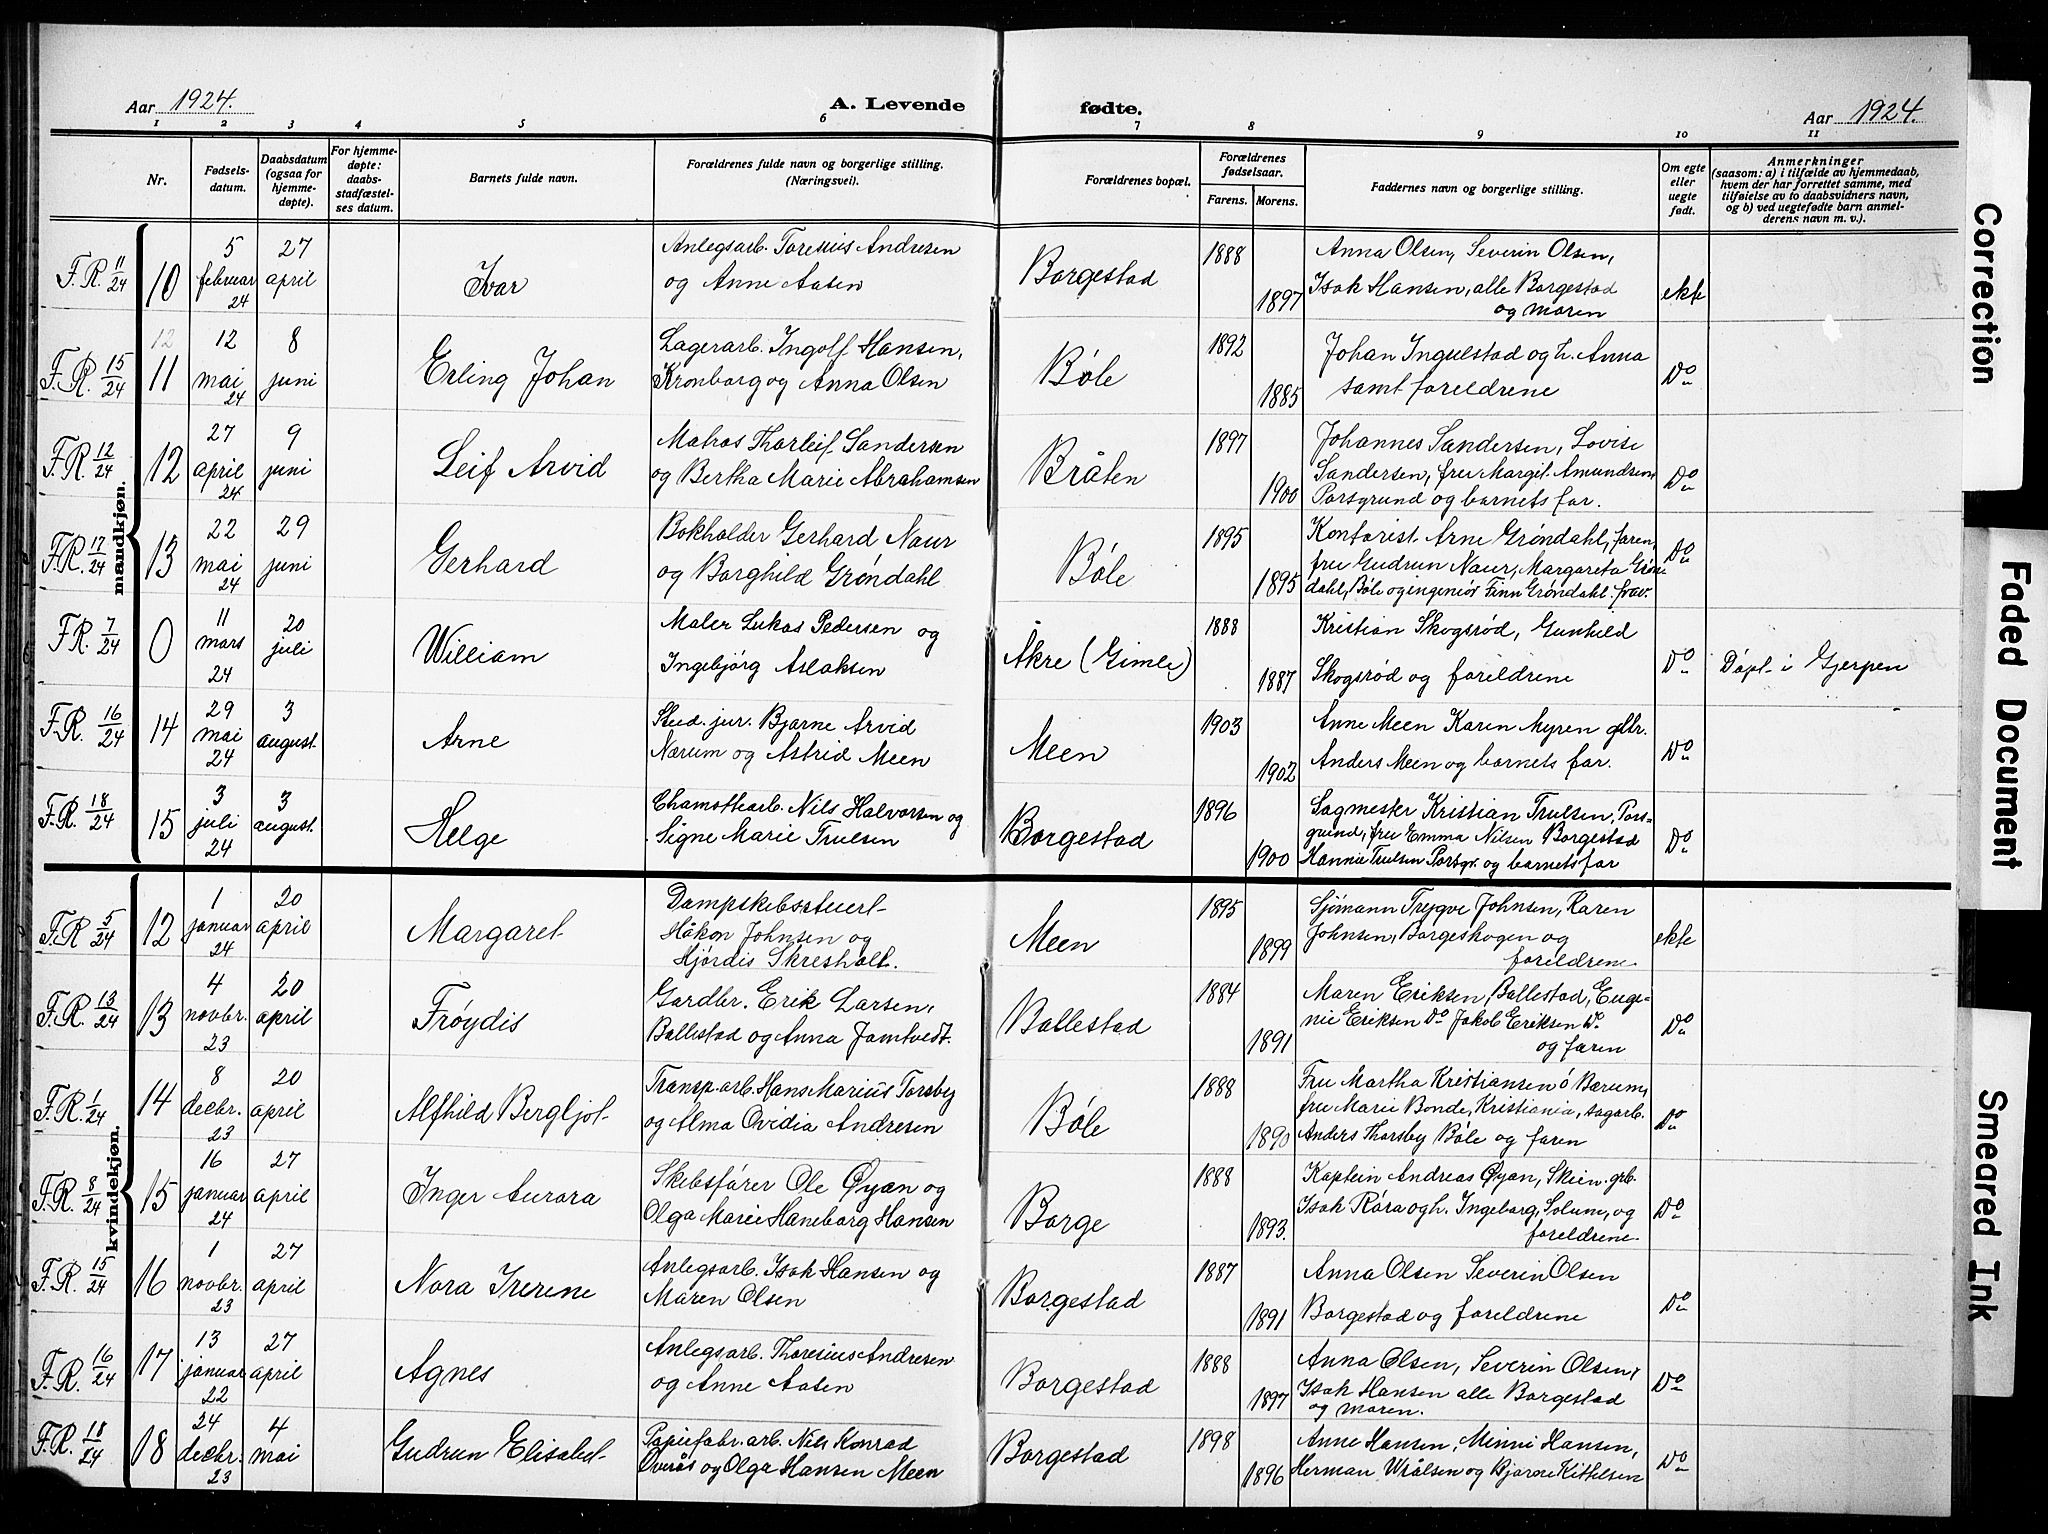 Aar 1924. A. Levende fødte. Aar 1924.
1 2 3 4 5 6 7 8 9 10 11
Nr.
Fødsels-
datum.
Daabsdatum
(ogsaa for
hjemme-
døpte).
For hjemme-
døpte:
daabs-
stadfæstel-
ses datum.
Barnets fulde navn.
Forældrenes fulde navn og borgerlige stilling.
(Næringsvei).
Forældrenes bopæl.
Forældrenes
fødselsaar.
Farens. Morens.
Faddernes navn og borgerlige stilling.
Om egte
eller
uegte
født.
Anmerkninger
(saasom: a) i tilfælde av hjemmedaab,
hvem der har forrettet samme, med
tilføielse av to daabsvidners navn,
og b) ved uegtefødte barn anmel-
derens navn m. v.).
mandkjøn.
F.R. 11/24 10
5
februar
24
27
april
Ivar
Anlegsarb. Toresius Andresen
og Anne Aasen
Borgestad
1888
1897
Anna Olsen, Severin Olsen,
Isak Hansen, alle Borgestad
og moren
ekte
F.R. 15/24 12 11
12
mai
24
8
juni
Erling Johan
Lagerarb. Ingolf Hansen,
Kronborg og Anna Olsen
Bøle
1892
1885
Johan Ingulstad og h. Anna
samt foreldrene
Do
F.R. 12/24 12
27
april
24
9
juni
Leif Arvid
Matros Thorleif Sandersen
og Bertha Marie Abrahamsen
Bråten
1897
1900
Johannes Sandersen, Lovise
Sandersen, fru Margit Amundsen,
Porsgrund og barnets far.
Do
F.R. 17/24 13
22
mai
24
29
juni
Gerhard
Bokholder Gerhard Naur
og Borghild Grøndahl
Bøle
1895
1895
Kontorist Arne Grøndahl, faren,
fru Gudrun Naur, Margareta Grøn-
dahl, Bøle og ingeniør Finn Grøndahl. frav.
Do
F.R. 7/24 0
11
mars
24
20
juli
William
Maler Lukas Pedersen og
Ingebjørg Aslaksen
Åkre (Gimle)
1888
1887
Kristian Skogsrød, Gunhild
Skogsrød og foreldrene
Do
Døpt i Gjerpen
F.R. 16/24 14
29
mai
24
3
august
Arne
Stud. jur. Bjarne Arvid
Nærum og Astrid Meen
Meen
1903
1902
Anne Meen Karen Myren
Anders Meen og barnets far.
Do
F.R. 18/24 15
3
juli
24
3
august
Helge
Chamottearb. Nils Halvorsen og
Signe Marie Trulsen
Borgestad
1896
1900
Sagmester Kristian Trulsen, Pors-
grund, fru Emma Nilsen Borgestad
Hannie Trulsen Porsgr. og barnets far
Do
kvindekjøn.
F.R. 5/24 12
1
januar
24
20
april
Margaret
Dampskibsstuert
Håkon Johnsen og
Hjørdis Skresholt.
Meen
1895
1899
Sjømann Trygve Johnsen, Karen
Johnsen, Borgeskogen og
foreldrene
ekte
F.R. 13/24 13
4
novbr.
23
20
april
Frøydis
Gardbr. Erik Larsen,
Ballestad og Anna Jamtvedt.
Ballestad
1884
1891
Maren Eriksen, Ballestad, Euge-
nie Eriksen Do Jakob Eriksen Do
og faren
Do
F.R. 1/24 14
8
decbr.
23
20
april
Alfhild Bergljot
Transp. arb. Hans Marius Torsby
og Alma Ovidia Andresen
Bøle
1888
1890
Fru Martha Kristiansen ö Bærum,
fru Marie Bonde, Kristiania, sagarb.
Anders Thorsby Bøle og faren
Do
F.R. 8/24 15
16
januar
24
27
april
Inger Aurora
Skibsfører Ole Øyan og
Olga Marie Haneborg Hansen
Borge
1888
1893.
Kaptein Andreas Øyan, Skien. grb.
Isak Røra og h. Ingeborg, Solum, og
foreldrene
Do
F.R. 15/24 16
1
novbr.
23
27
april
Nora Irerene
Anlegsarb. Isak Hansen og
Maren Olsen
Borgestad
1887
1891
Anna Olsen Severin Olsen
Borgestad og foreldrene
Do
F.R. 16/24 17
13
januar
22
27
april
Agnes
Anlegsarb. Thoresius Andresen
og Anne Aasen
Borgestad
1888
1897
Anna Olsen, Severin Olsen,
Isak Hansen alle Borgestad
og moren.
Do
F.R. 18/24 18
24
decbr.
23
4
mai
Gudrun Elisabet
Papirfabr. arb. Nils Konrad
Överås og Olga Hansen Meen
Borgestad
1898
1896
Anne Hansen, Minni Hansen,
Herman Wrålsen og Bjarne Kittelsen
Do
Correction
Faded Document
Smeared Ink